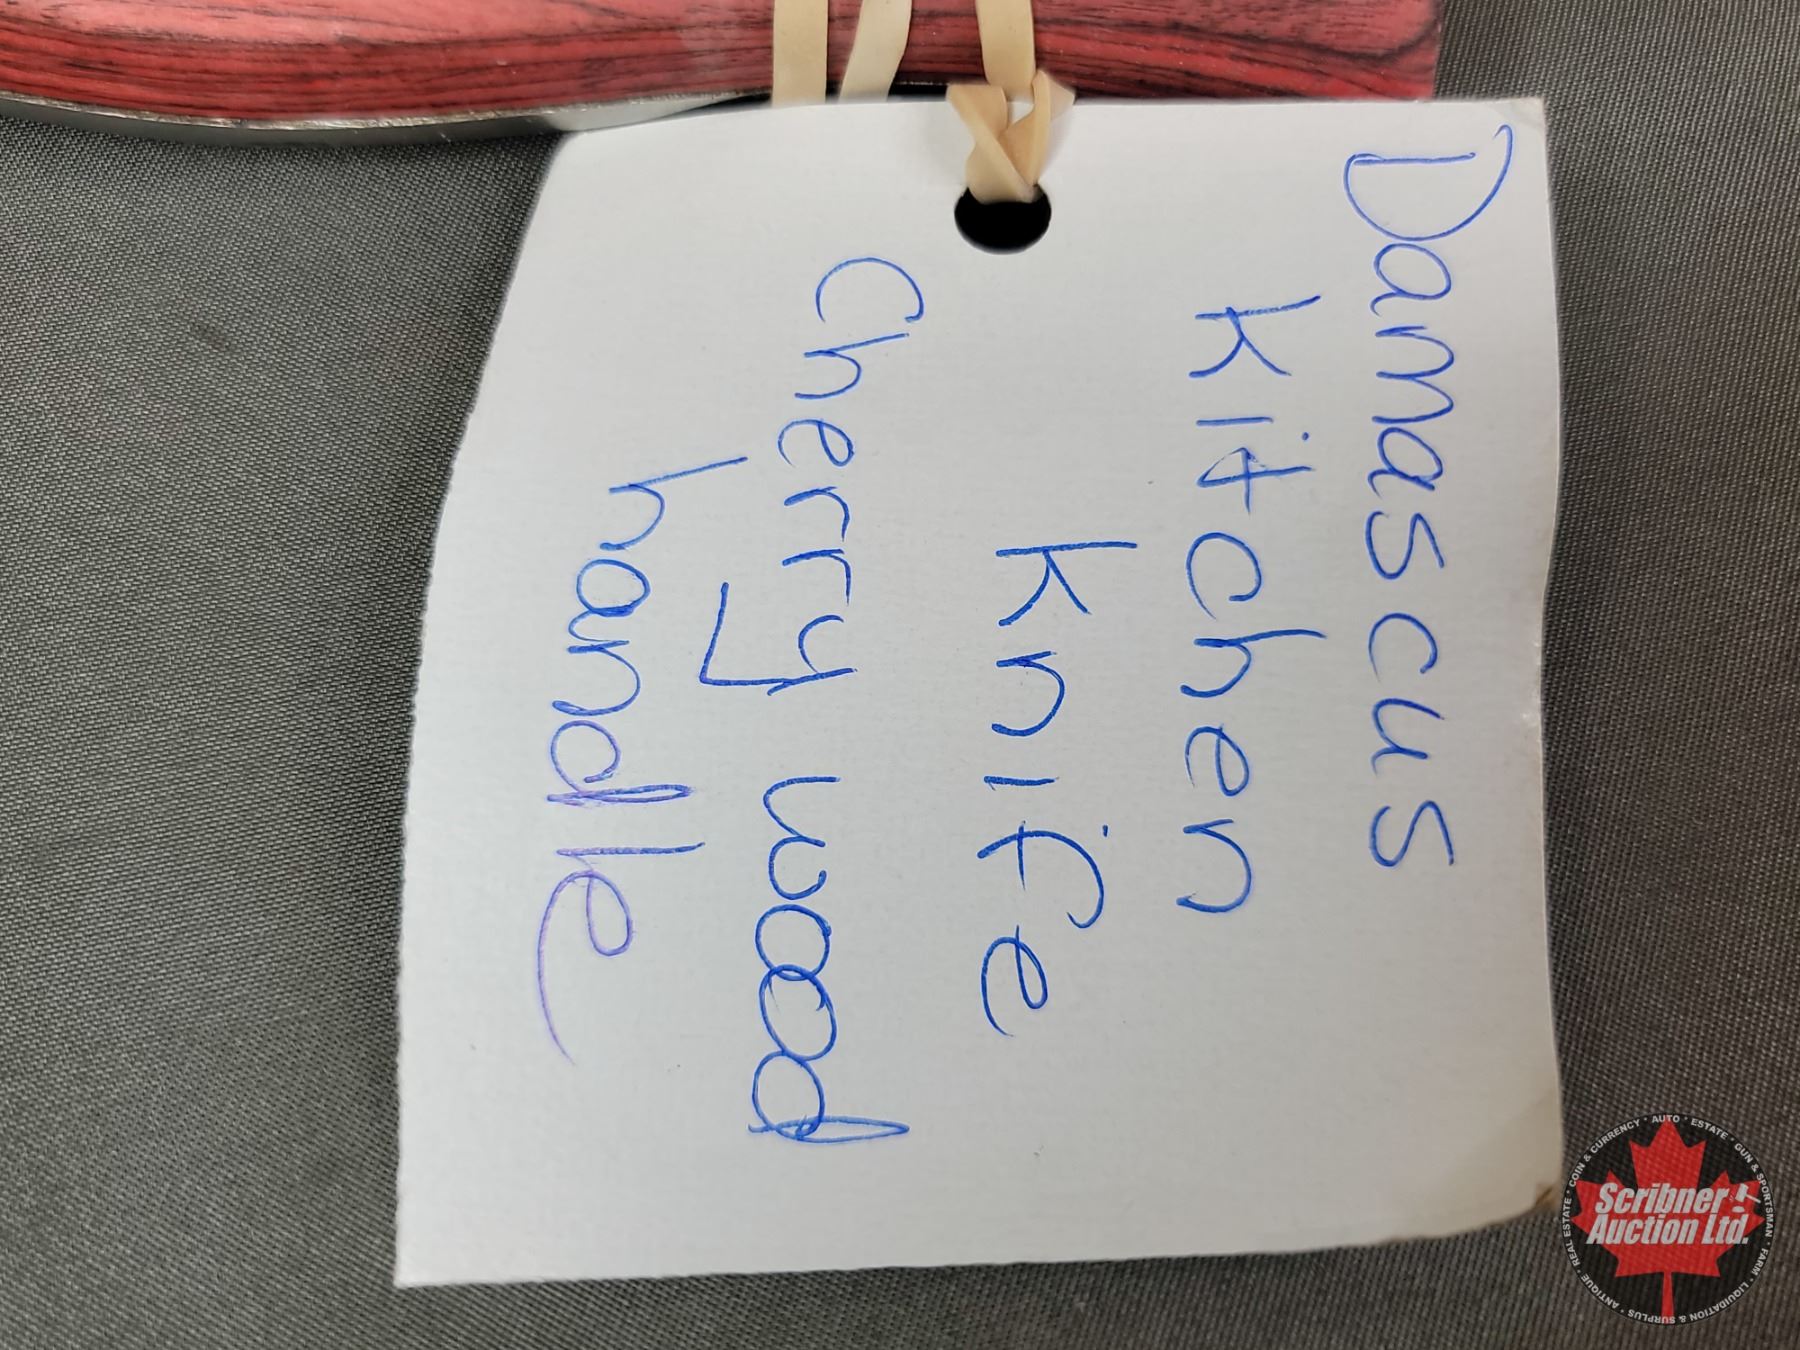 Damascus
Kitchen
Knife
Cherry wood
handle
Scribner
Auction Ltd.
AUTO · ESTATE · GUN & SPORTSMAN · FARM · LIQUIDATION & SURPLUS · ANTIQUE · REAL ESTATE · COIN & CURRENCY ·